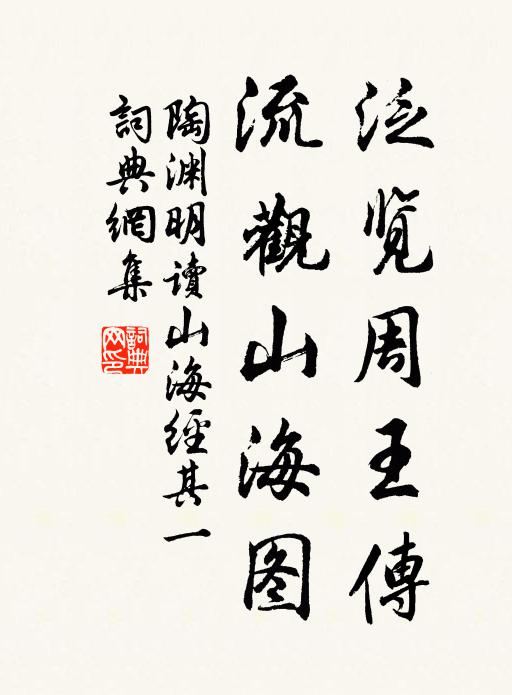 泛览周王傳
流觀山海图
陶渊明讀山海經其一
詞典網集
詞典网印